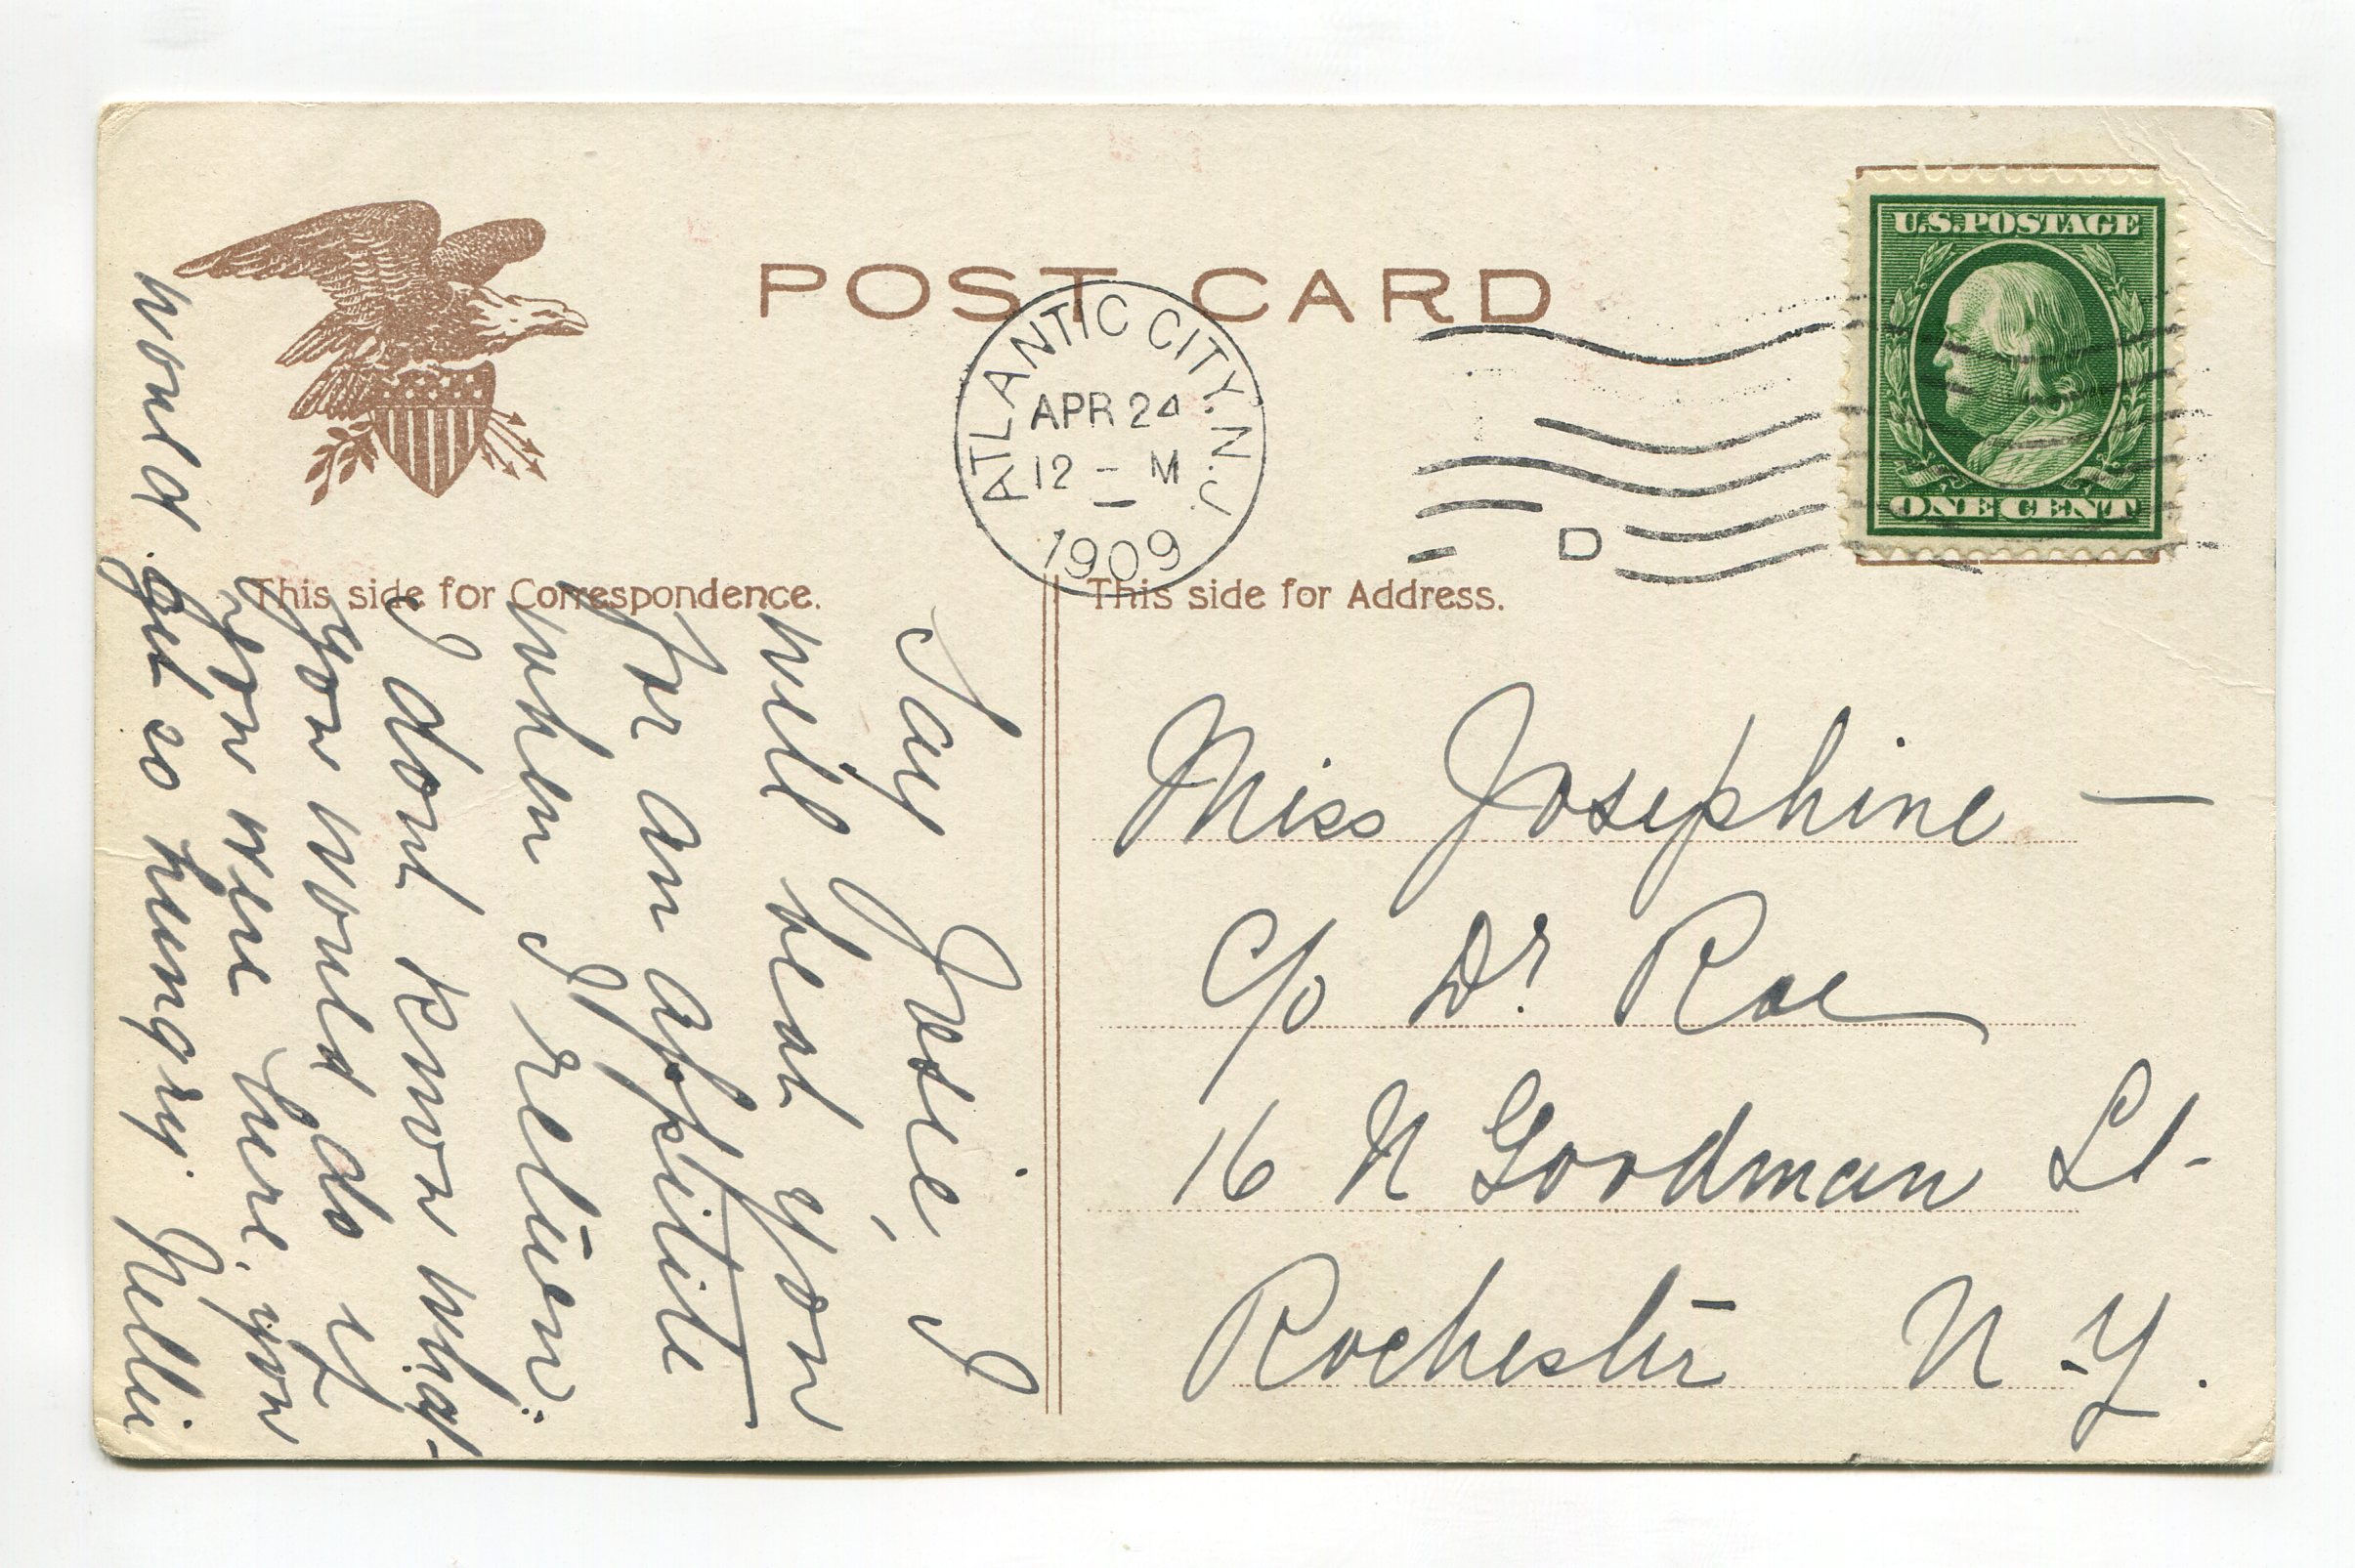 POST CARD
U.S. POSTAGE
ONE CENT
ATLANTIC CITY, N.J.
APR 24
12 - M
1909
D
This side for Correspondence.
This side for Address.
Say Josie, I
will beat you
for an appitite
when I return.
I dont know what
you would do if
you were here, you
would get so hungry. Nellie
Miss Josephine —
c/o Dr. Roe
16 N Goodman St-
Rochester N.Y.